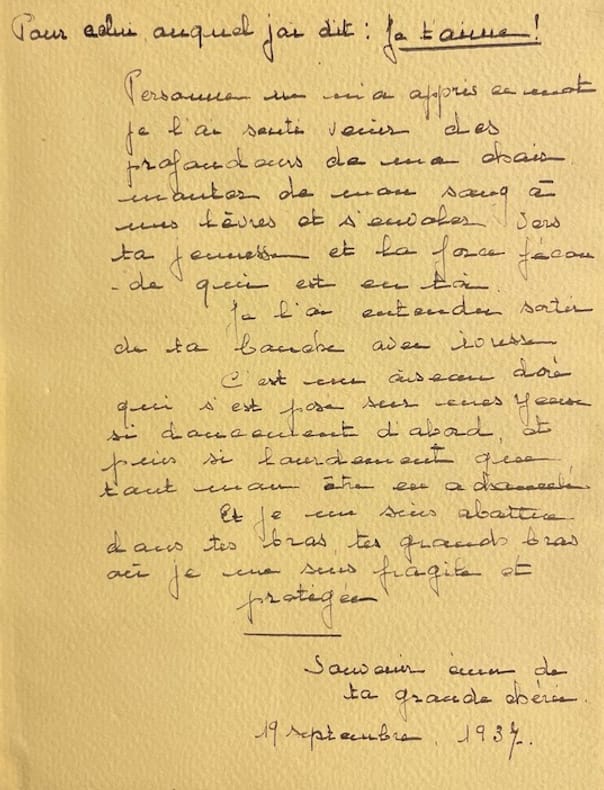 Pour celui auquel j'ai dit : Je t'aime !
Personne ne m'a appris ce mot
je l'ai senti venir des
profondeurs de ma chair
monter de mon sang à
mes lèvres et s'envoler vers
ta jeunesse et la force fécon
-de qui est en toi.
Je l'ai entendu sortir
de ta bouche avec ivresse
C'est un oiseau doré
qui s'est posé sur mes yeux
si doucement d'abord, et
puis si lourdement que
tout mon être en a chancelé
Et je me suis abattue
dans tes bras, tes grands bras
où je me sens fragile et
protégée
Souvenir ému de
ta grande chérie.
19 septembre. 1937.